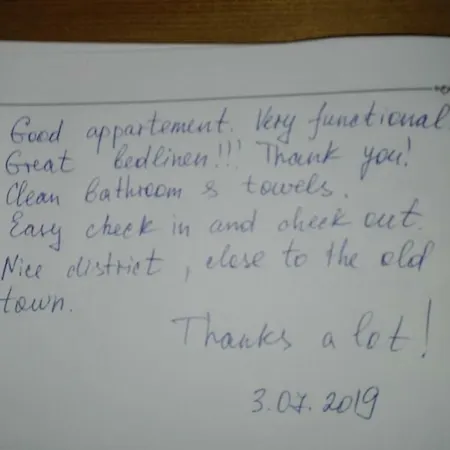 Good appartement. Very functional
Great bedlinen!!! Thank you!
Clean bathroom & towels.
Easy check in and check out.
Nice district, close to the old
town.
Thanks a lot!
3.07.2019